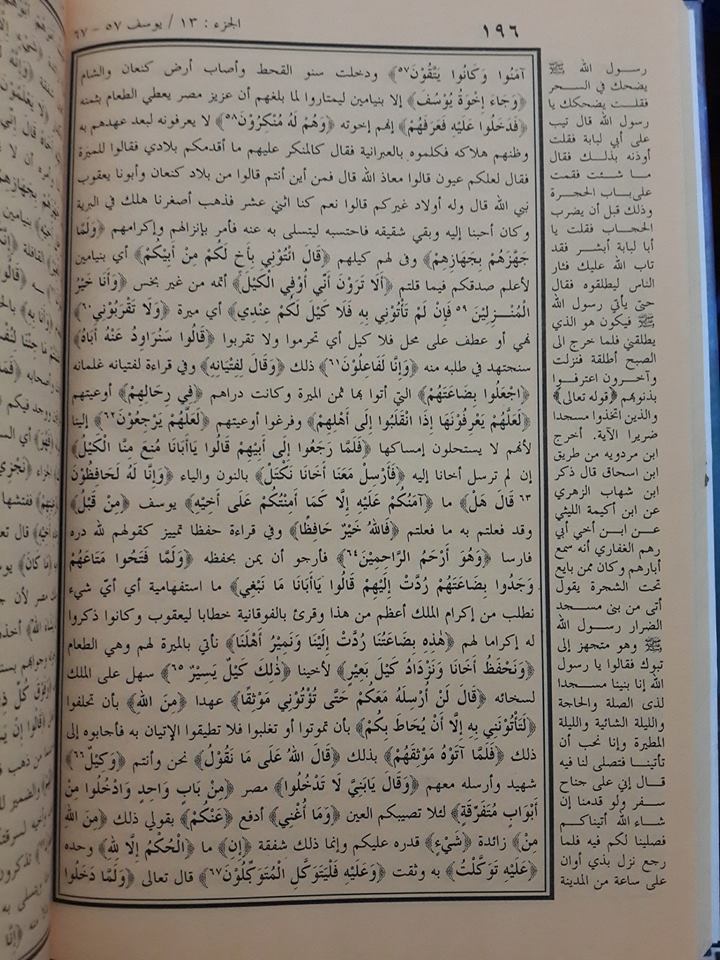 ١٩٦
الجزء : ١٣ / يوسف ٥٧ – ٦٧
آمَنُوا وَكَانُوا يَتَّقُوْنَ ٥٧﴾ ودخلت سنو القحط وأصاب أرض كنعان والشام
﴿وَجَاءَ إِخْوَةُ يُوْسُفَ﴾ إلا بنيامين ليمتاروا لما بلغهم أن عزيز مصر يعطي الطعام بثمنه
﴿فَدَخَلُوا عَلَيْهِ فَعَرَفَهُمْ﴾ إنهم إخوته ﴿وَهُمْ لَهُ مُنْكِرُوْنَ ٥٨﴾ لا يعرفونه لبعد عهدهم به
وظنهم هلاكه فكلموه بالعبرانية فقال كالمنكر عليهم ما أقدمكم بلادي فقالوا للميرة
فقال لعلكم عيون قالوا معاذ الله قال فمن أين أنتم قالوا من بلاد كنعان وأبونا يعقوب
نبي الله قال وله أولاد غيركم قالوا نعم كنا اثني عشر فذهب أصغرنا هلك في البرية
وكان أحبنا إليه وبقي شقيقه فاحتسبه ليتسلى به عنه فأمر بإنزالهم وإكرامهم ﴿وَلَمَّا
جَهَّزَهُمْ بِجَهَازِهِمْ﴾ وفى لهم كيلهم ﴿قَالَ ائْتُوْنِي بِأَخٍ لَكُمْ مِنْ أَبِيْكُمْ﴾ أي بنيامين
لأعلم صدقكم فيما قلتم ﴿أَلَا تَرَوْنَ أَنِّي أُوْفِي الْكَيْلَ﴾ أتمه من غير بخس ﴿وَأَنَا خَيْرُ
الْمُنْـزِلِيْنَ ٥٩ فَإِنْ لَمْ تَأْتُوْنِي بِهِ فَلَا كَيْلَ لَكُمْ عِنْدِي﴾ أي ميرة ﴿وَلَا تَقْرَبُوْنِي ٦٠﴾
نهي أو عطف على محل فلا كيل أي تحرموا ولا تقربوا ﴿قَالُوا سَنُرَاوِدُ عَنْهُ أَبَاهُ﴾
سنجتهد في طلبه منه ﴿وَإِنَّا لَفَاعِلُوْنَ ٦١﴾ ذلك ﴿وَقَالَ لِفِتْيَانِهِ﴾ وفي قراءة لفتيانه غلمانه
﴿اجْعَلُوا بِضَاعَتَهُمْ﴾ التي أتوا بها ثمن الميرة وكانت دراهم ﴿فِي رِحَالِهِمْ﴾ أوعيتهم
﴿لَعَلَّهُمْ يَعْرِفُوْنَهَا إِذَا انْقَلَبُوا إِلَى أَهْلِهِمْ﴾ وفرغوا أوعيتهم ﴿لَعَلَّهُمْ يَرْجِعُوْنَ ٦٢﴾ إلينا
لأنهم لا يستحلون إمساكها ﴿فَلَمَّا رَجَعُوا إِلَى أَبِيْهِمْ قَالُوا يَاأَبَانَا مُنِعَ مِنَّا الْكَيْلُ﴾
إن لم ترسل أخانا إليه ﴿فَأَرْسِلْ مَعَنَا أَخَانَا نَكْتَلْ﴾ بالنون والياء ﴿وَإِنَّا لَهُ لَحَافِظُوْنَ
٦٣ قَالَ هَلْ﴾ ما ﴿آمَنُكُمْ عَلَيْهِ إِلَّا كَمَا أَمِنْتُكُمْ عَلَى أَخِيْهِ﴾ يوسف ﴿مِنْ قَبْلُ﴾
وقد فعلتم به ما فعلتم ﴿فَاللهُ خَيْرٌ حَافِظًا﴾ وفي قراءة حفظا تمييز كقولهم لله دره
فارسا ﴿وَهُوَ أَرْحَمُ الرَّاحِمِيْنَ ٦٤﴾ فأرجو أن يمن بحفظه ﴿وَلَمَّا فَتَحُوا مَتَاعَهُمْ
وَجَدُوا بِضَاعَتَهُمْ رُدَّتْ إِلَيْهِمْ قَالُوا يَاأَبَانَا مَا نَبْغِي﴾ ما استفهامية أي أيّ شيء
نطلب من إكرام الملك أعظم من هذا وقرئ بالفوقانية خطابا ليعقوب وكانوا ذكروا
له إكراما لهم ﴿هٰذِهِ بِضَاعَتُنَا رُدَّتْ إِلَيْنَا وَنَمِيْرُ أَهْلَنَا﴾ نأتي بالميرة لهم وهي الطعام
﴿وَنَحْفَظُ أَخَانَا وَنَزْدَادُ كَيْلَ بَعِيْرٍ﴾ لأخينا ﴿ذٰلِكَ كَيْلٌ يَسِيْرٌ ٦٥﴾ سهل على الملك
لسخائه ﴿قَالَ لَنْ أُرْسِلَهُ مَعَكُمْ حَتَّى تُؤْتُوْنِي مَوْثِقًا﴾ عهدا ﴿مِنَ اللهِ﴾ بأن تحلفوا
﴿لَتَأْتُوْنَنِي بِهِ إِلَّا أَنْ يُحَاطَ بِكُمْ﴾ بأن تموتوا أو تغلبوا فلا تطيقوا الإتيان به فأجابوه إلى
ذلك ﴿فَلَمَّا آتَوْهُ مَوْثِقَهُمْ﴾ بذلك ﴿قَالَ اللهُ عَلَى مَا نَقُوْلُ﴾ نحن وأنتم ﴿وَكِيْلٌ ٦٦﴾
شهيد وأرسله معهم ﴿وَقَالَ يَابَنِيَّ لَا تَدْخُلُوا﴾ مصر ﴿مِنْ بَابٍ وَاحِدٍ وَادْخُلُوا مِنْ
أَبْوَابٍ مُتَفَرِّقَةٍ﴾ لئلا تصيبكم العين ﴿وَمَا أُغْنِي﴾ أدفع ﴿عَنْكُمْ﴾ بقولي ذلك ﴿مِنَ اللهِ
مِنْ﴾ زائدة ﴿شَيْءٍ﴾ قدره عليكم وإنما ذلك شفقة ﴿إِنِ﴾ ما ﴿الْحُكْمُ إِلَّا لِلهِ﴾ وحده
﴿عَلَيْهِ تَوَكَّلْتُ﴾ به وثقت ﴿وَعَلَيْهِ فَلْيَتَوَكَّلِ الْمُتَوَكِّلُوْنَ ٦٧﴾ قال تعالى ﴿وَلَمَّا دَخَلُوا
رسول الله ﷺ
يضحك في السحر
فقلت يضحكك يا
رسول الله قال تيب
على أبي لبابة فقلت
أوذنه بذلك فقال
ما شئت فقمت
على باب الحجرة
وذلك قبل أن يضرب
الحجاب فقلت يا
أبا لبابة أبشر فقد
تاب الله عليك فثار
الناس ليطلقوه فقال
حتى يأتي رسول الله
ﷺ فيكون هو الذي
يطلقني فلما خرج الى
الصبح أطلقه فنزلت
وآخرون اعترفوا
بذنوبهم ﴿قوله تعالى﴾
والذين اتخذوا مسجدا
ضريرا الآية. أخرج
ابن مردويه من طريق
ابن اسحاق قال ذكر
ابن شهاب الزهري
عن ابن أكيمة الليثي
عن ابن أخي أبي
رهم الغفاري أنه سمع
أبارهم وكان ممن بايع
تحت الشجرة يقول
أتى من بنى مسجد
الضرار رسول الله
ﷺ وهو متجهز إلى
تبوك فقالوا يا رسول
الله إنا بنينا مسجدا
لذى الصلة والحاجة
والليلة الشاتية والليلة
المطيرة وإنا نحب أن
تأتينا فتصلى لنا فيه
قال إني على جناح
سفر ولو قدمنا إن
شاء الله أتيناكم
فصلينا لكم فيه فلما
رجع نزل بذي أوان
على ساعة من المدينة